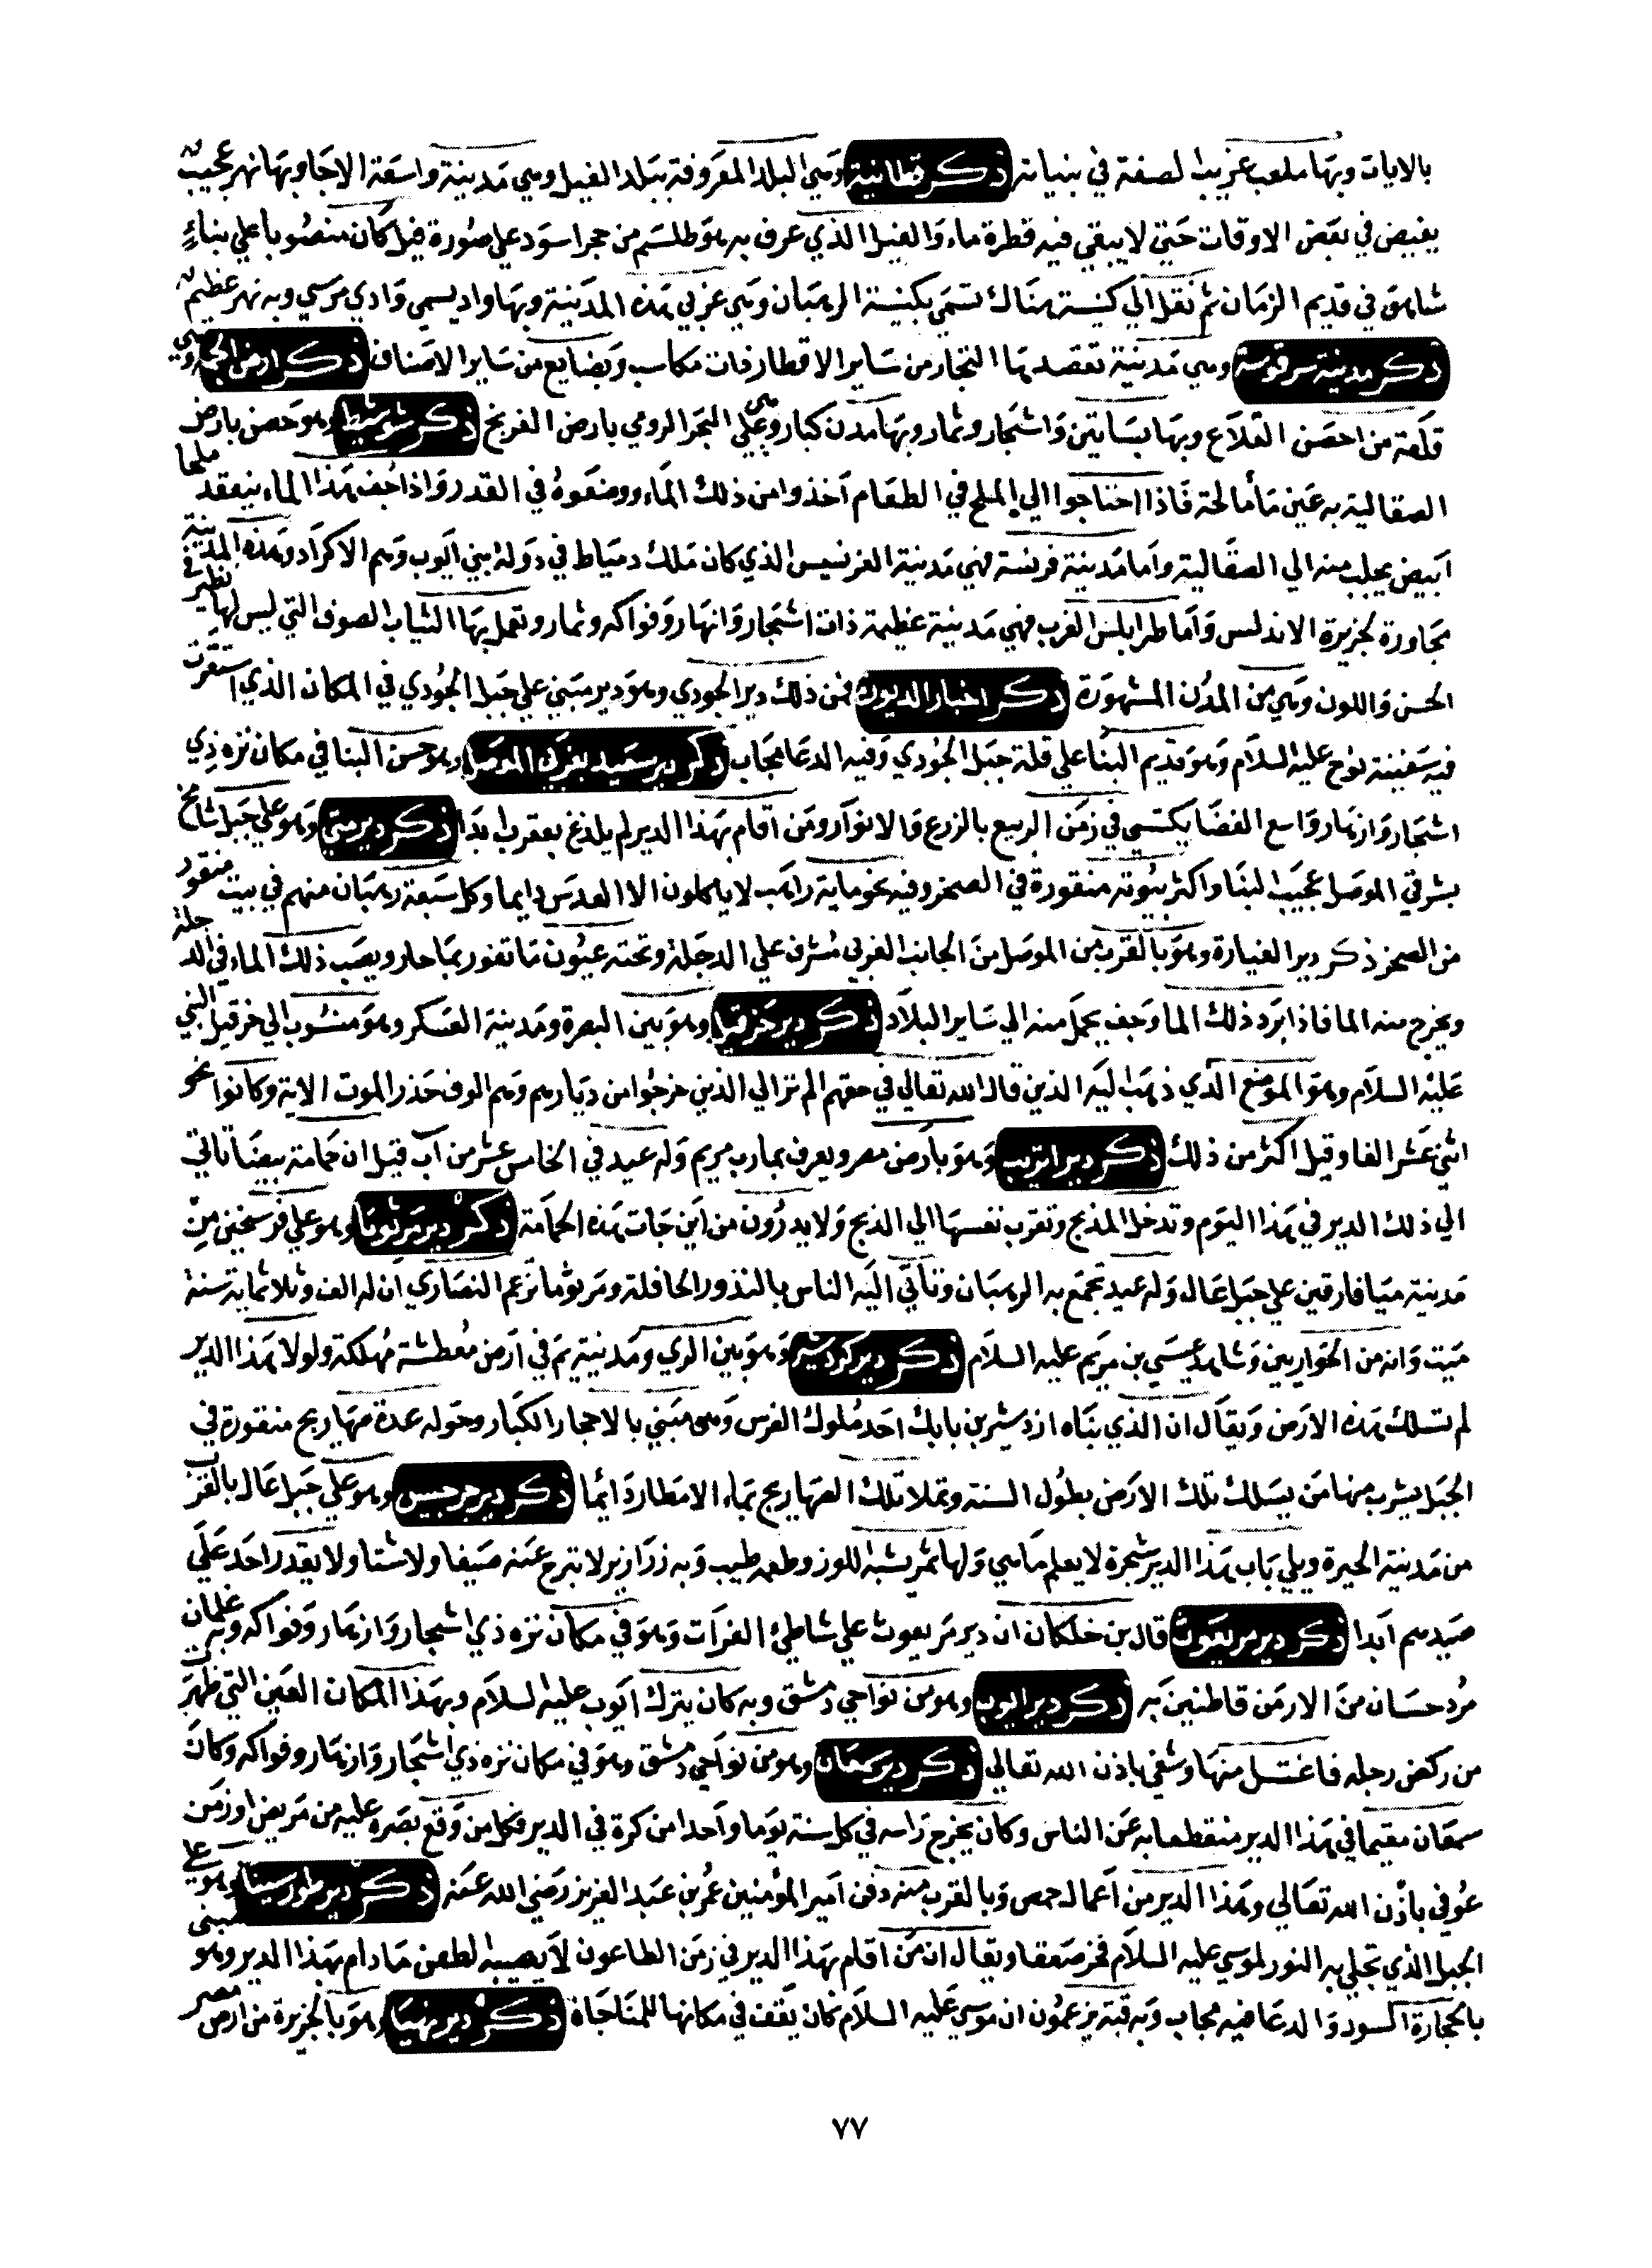 بالايات وبها ملعب غريب الصفة في بنيانه ذكر قطانية وهي البلد المعروفة ببلد الفيل وهي مدينة واسعة الاجا وبها نهر عجيب
يغيض في بعض الاوقات حتي لا يبقي فيه قطرة ماء والفيل الذي عرف به هو طلسم من حجر اسود علي صورة فيل كان منصوبا علي بناء
شاهق في قديم الزمان ثم نقل الي كنيسة هناك تسمي بكنيسة الرهبان وهي غربي هذه المدينة وبها واد يسمي وادي موسي وبه نهر عظيم
ذكر مدينة سرقوسة وهي مدينة تقصدها التجار من ساير الاقطار ذات مكاسب وبضايع من ساير الاصناف ذكر ارض وهي
قلعة من احصن القلاع وبها بساتين واشجار وثمار وبها مدن كبار وهي علي البحر الرومي بارض الفرنج ذكر شرمشيط وهو حصن بارض
الصقالبة به عين ماء مالحة فاذا احتاجوا الي الملح في الطعام اخذوا من ذلك الماء ووضعوه في القدر واذا جف هذا الماء ينعقد ملحا
ابيض يجلب منه الي الصقالبة واما مدينة فرنسة فهي مدينة الفرنسيس الذي كان ملك دمياط في دولة بني ايوب وهم الاكراد وهذه المدينة
مجاورة لجزيرة الاندلس واما طرابلس الغرب فهي مدينة عظيمة ذات اشجار وانهار وفواكه وثمار وتعمل بها الثياب الصوف التي ليس لها نظير في
الحسن واللون وهي من المدن المشهورة ذكر اخبار الديورة فمن ذلك دير الجودي وهو دير مبني علي جبل الجودي في المكان الذي استقرت
فيه سفينة نوح عليه السلام وهو قديم البنا علي قلة جبل الجودي وفيه الدعا مجاب ذكر دير سعيد بغربي الموصل وهو حسن البنا في مكان نزه ذي
اشجار وازهار واسع الفضا يكتسي في زمن الربيع بالزرع والانوار ومن اقام بهذا الدير لم يلدغ بعقرب ابدا ذكر دير متي وهو علي جبل شامخ
بشرقي الموصل عجيب البنا واكثر بيوته منقورة في الصخر وفيه نحو ماية راهب لا ياكلون الا العدس دايما وكل سبعة رهبان منهم في بيت منقور
من الصخر ذكر دير الغيارة وهو بالقرب من الموصل من الجانب الغربي مشرف علي الدجلة وتحته عيون ما تفور بما حار ويصب ذلك الماء في الدجلة
ويخرج منه الما فاذا برد ذلك الما وجف يحمل منه الي ساير البلاد ذكر دير حزقيل وهو بين البصرة ومدينة العسكر وهو منسوب الي حزقيل النبي
عليه السلام وهو الموضع الذي ذهب اليه الذين قال الله تعالي في حقهم الم تر الي الذين خرجوا من ديارهم وهم الوف حذر الموت الاية وكانوا نحو
اثني عشر الفا وقيل اكثر من ذلك ذكر دير اتريب وهو بارض مصر ويعرف بمارب مريم وله عيد في الخامس عشر من آب قيل ان حمامة بيضا تاتي
الي ذلك الدير في هذا اليوم وتدخل المذبح وتقرب نفسها الي الذبح ولا يدرون من اين جات هذه الحمامة ذكر دير مرتوما وهو علي فرسخين من
مدينة ميافارقين علي جبل عال وله عيد تجمع به الرهبان وتاتي اليه الناس بالنذور الحافلة ومرثوما تزعم النصاري ان له الف وثلاثماية سنة
ميت وانه من الحواريين وشاهد عيسي بن مريم عليه السلام ذكر دير كردشير وهو بين الري ومدينة قم في ارض معطشة مهلكة ولولا هذا الدير
لم تسلك هذه الارض ويقال ان الذي بناه ازدشير بن بابك احد ملوك الفرس وهي مبني بالاحجار الكبار وحوله عدة صهاريج منقورة في
الجبل يشرب منها من يسلك تلك الارض بطول السنة وتملا تلك الصهاريج بماء الامطار دائما ذكر دير جرجيس وهو علي جبل عال بالقرب
من مدينة الحيرة ويلي باب هذا الدير شجرة لا يعلم ما هي ولها ثمر يشبه اللوز وطعمه طيب وبه زرازير لا تبرح عنه صيفا ولا شتا ولا يقدر احد علي
صيدهم ابدا ذكر دير مريعوث قال بن خلكان ان دير مريعوث علي شاطئ الفرات وهو في مكان نزه ذي اشجار وازهار وفواكه وبه غلمان
مرد حسان من الارمن قاطنين به ذكر دير ايوب وهو من نواحي دمشق وبه كان يترك ايوب عليه السلام وبهذا المكان العين التي ظهرت
من ركض رجله فاغتسل منها وشفي باذن الله تعالي ذكر دير سمعان وهو من نواحي دمشق وهو في مكان نزه ذي اشجار وازهار وفواكه وكان
سمعان مقيما في هذا الدير منقطعا به عن الناس وكان يخرج راسه في كل سنة يوما واحدا من كرة في الدير فكل من وقع بصره عليه من مريض او زمن
عوفي باذن الله تعالي وهذا الدير من اعمال حمص وبالقرب منه دفن امير المؤمنين عمر بن عبد العزيز رضي الله عنه ذكر دير طور سينا وهو علي
الجبل الذي تجلي به النور لموسي عليه السلام فخر صعقا ويقال ان من اقام بهذا الدير في زمن الطاعون لا يصيبه الطعن ما دام بهذا الدير وهو مبني
بالحجارة السود والدعا فيه مجاب وبه قبة يزعمون ان موسي عليه السلام كان يقف في مكانها للمناجاة ذكر دير نهيا وهو بالجزيرة من ارض مصر
٧٧